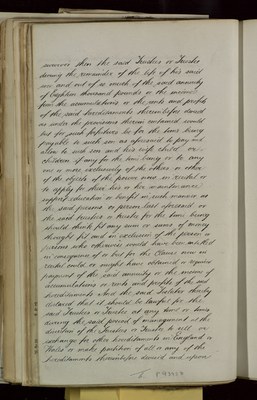 survivor then the said Trustees or Trustee
during the remainder of the life of his said
son and out of so much of the said annuity
of Eighteen thousand pounds or the income
from the accumulations or the rents and profits
of the said hereditaments thereinbefore devised
as under the provisions therein contained would
but for such forfeiture be for the time being
payable to such son as aforesaid to pay and
allow to such son and his wife child or
children if any for the time being or to any
one or more exclusively of the others or other
of the objects of the power now in recital or
to apply for their his or her maintenance
support education or benefit in such manner as
the said persons or person last referred to
the said trustees or trustee for the time being
should think fit any sum or sums of money
thought fit and in exclusion of the person or
persons who otherwise would have been entitled
in consequence of or but for the Clause now in
recital could or might have obtained or required
payment of the said annuity or the income of
accumulations or rents and profits of the said
hereditaments And the said Testator thereby
declared that it should be lawful for the
said Trustees or Trustee at any time or times
during the said period of management at the
discretion of the Trustees or Trustee to sell or
exchange for other hereditaments in England or
Wales or make partition of all or any of the
hereditaments thereinbefore devised and upon